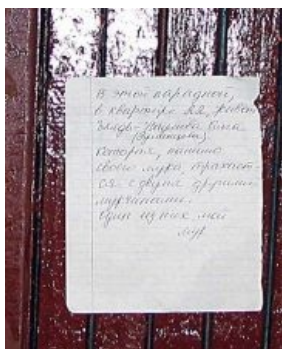 В этой парадной,
в квартире живет
блядь
которая, помимо
своего мужа, трахает
ся с двумя другими
мужчинами.
Один из них мой
муж